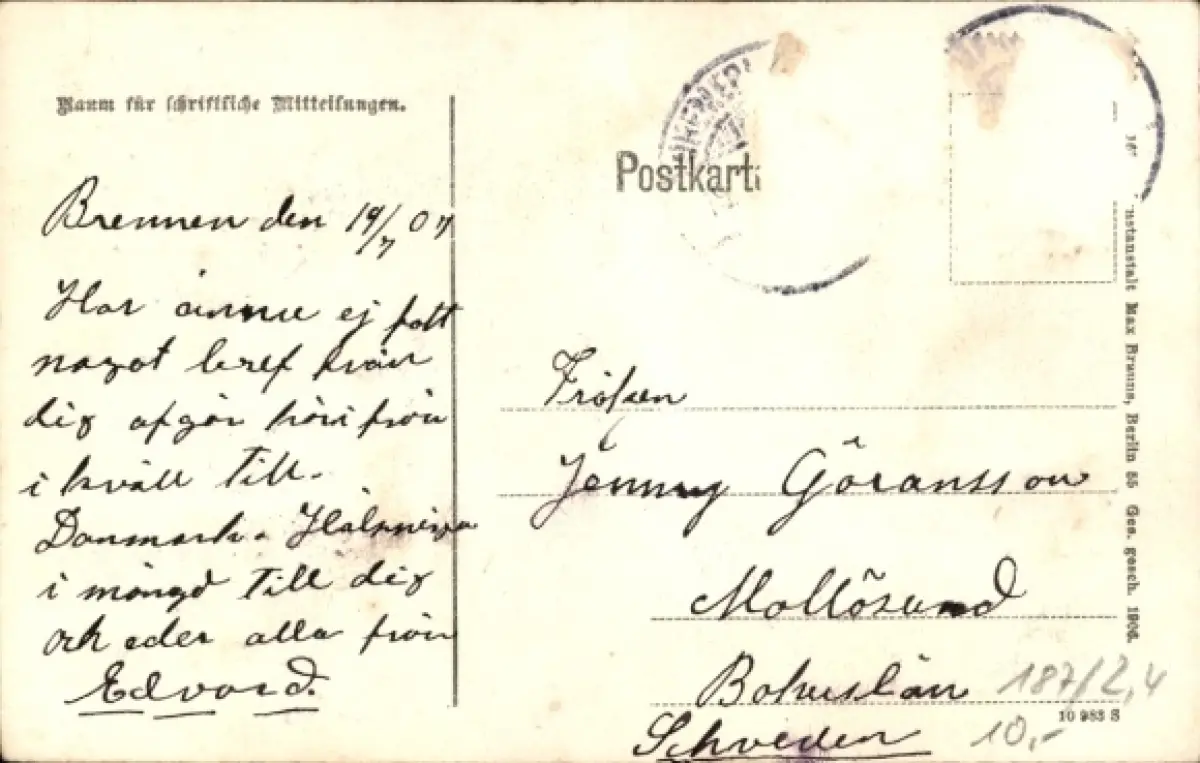 Raum für schriftliche Mitteilungen.
Brennen den 19/7 07
Har ännu ej fått
något bref från
dig afgår häri från
i kväll till
Danmark. Hälsningar
i mängd till dig
och eder alla från
Edvard.
Postkarte
Fröken
Jenny Göransson
Mollösund
Bohuslän
Schweden
187/2,4
10,-
10 983 S
Kunstanstalt Max Braune, Berlin 55 Ges. gesch. 1906.